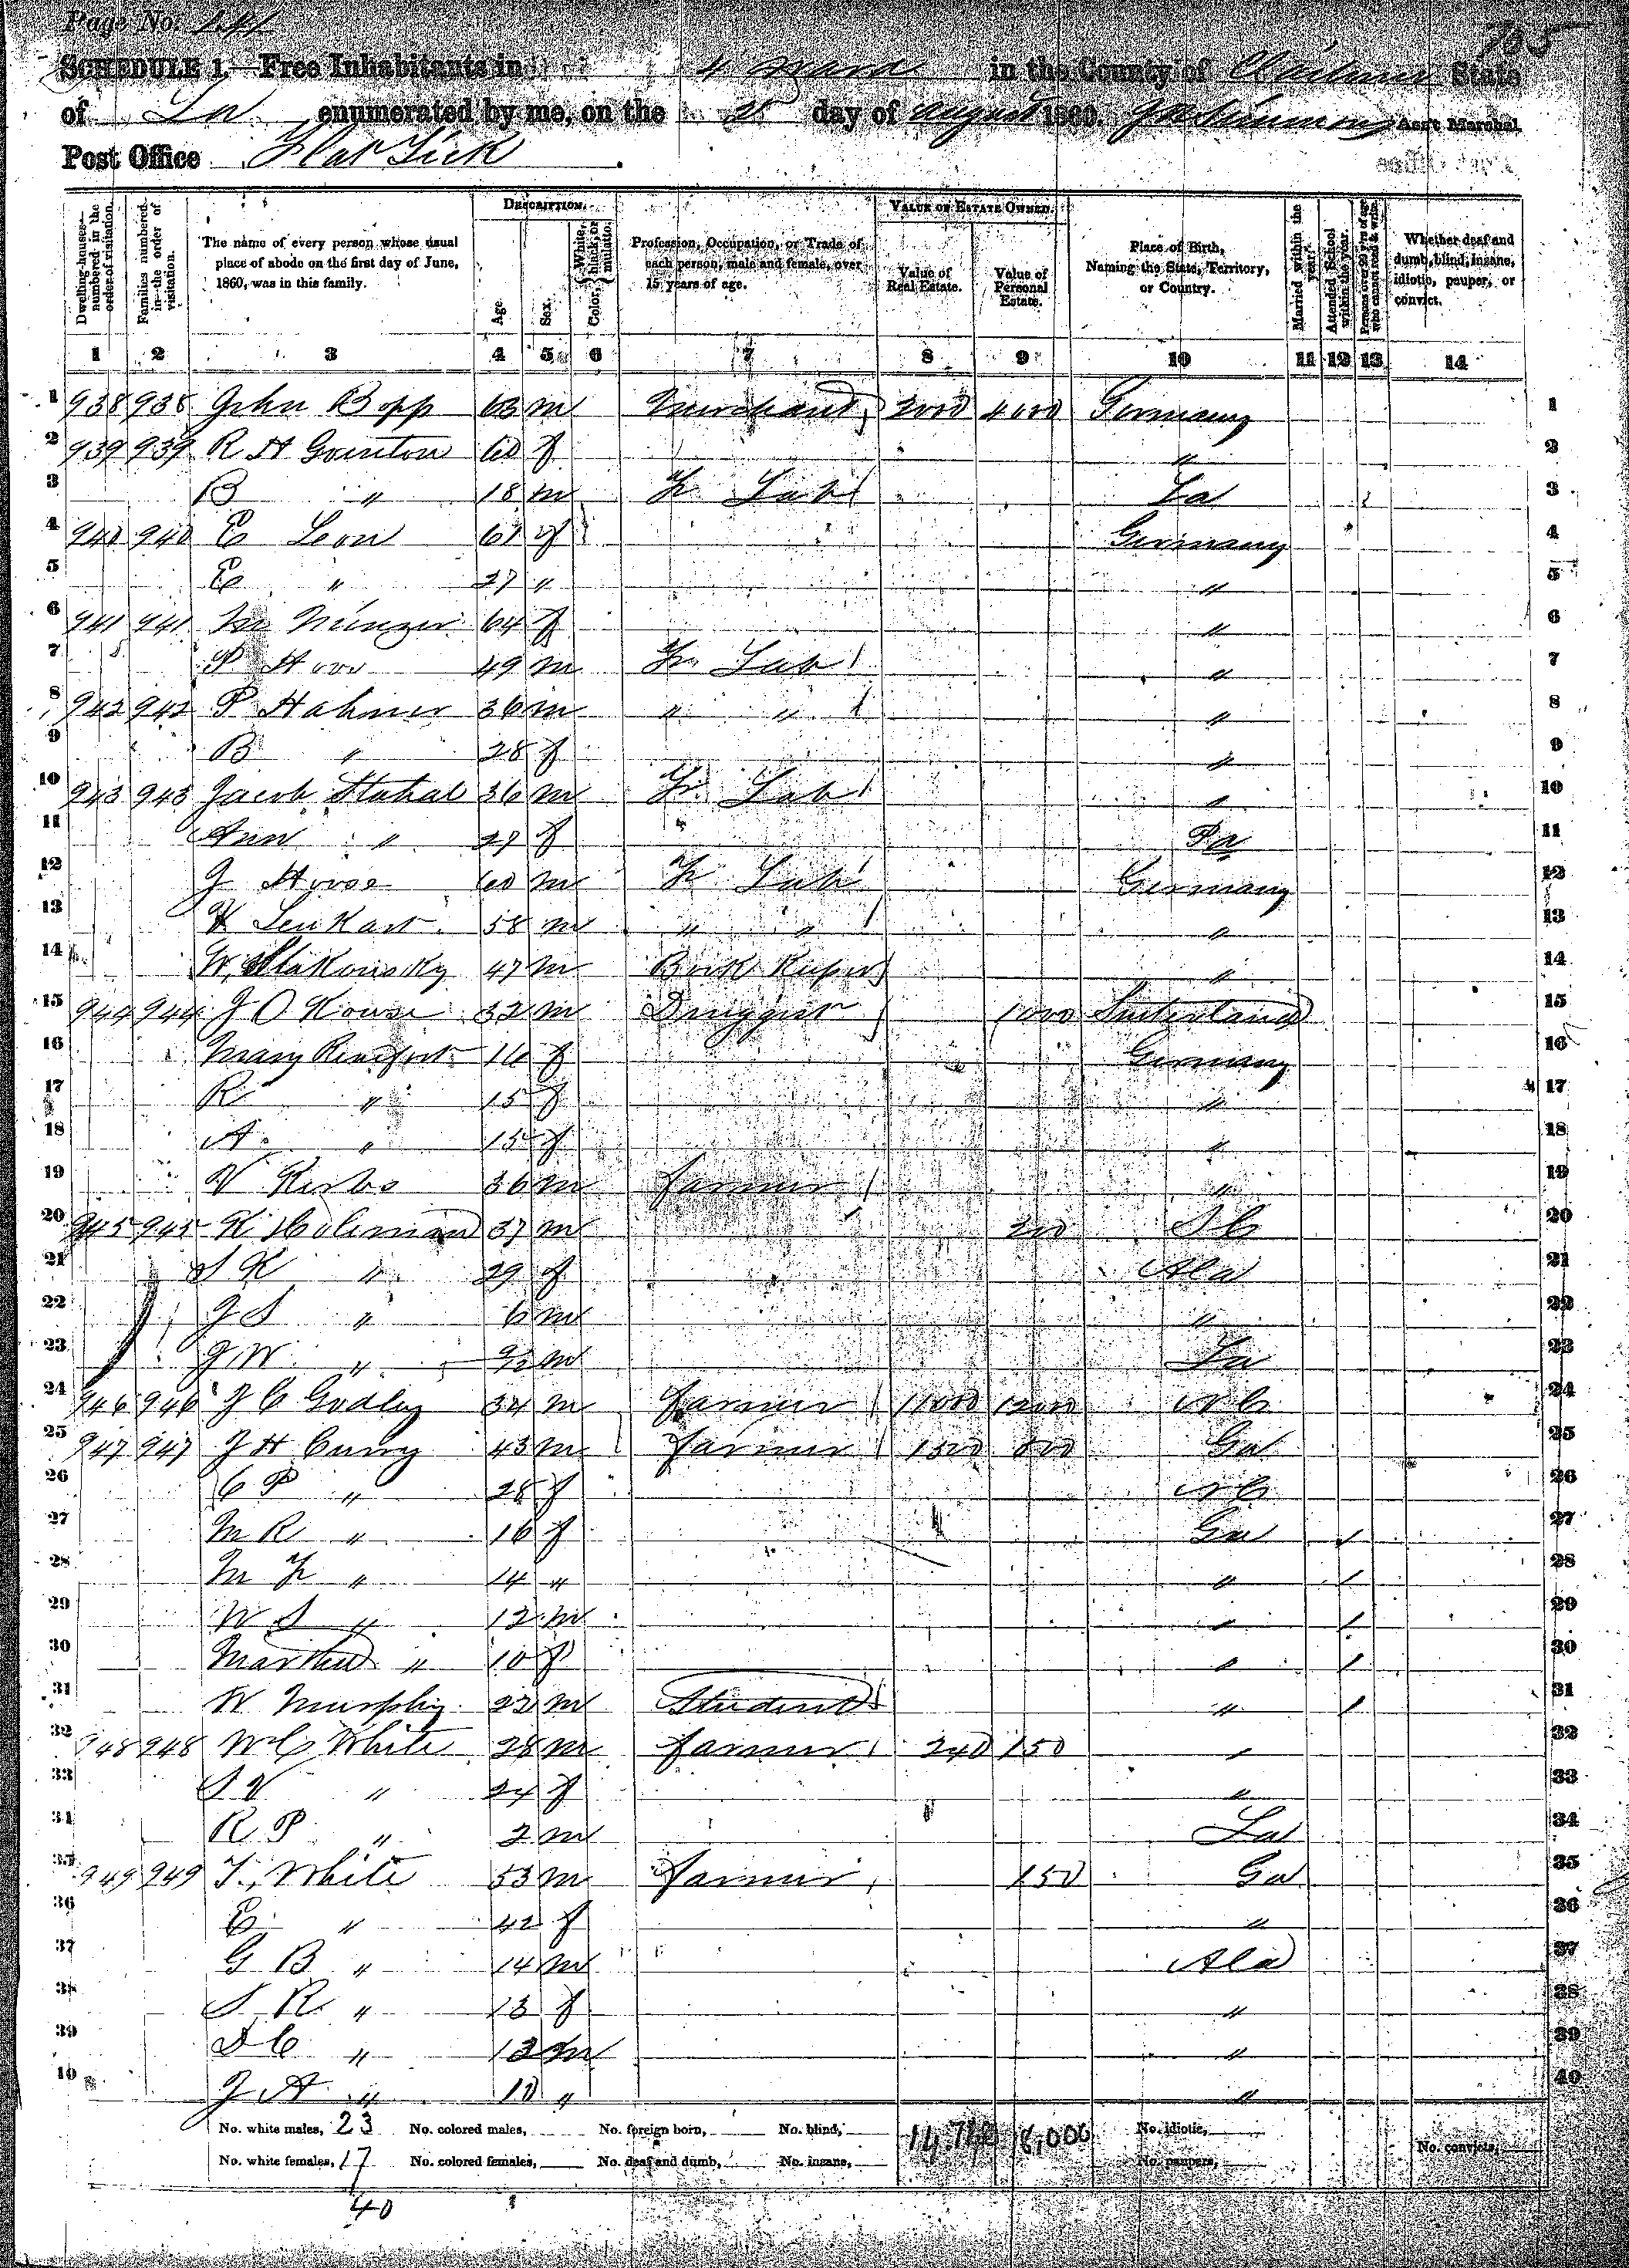 Page No. 141
SCHEDULE 1.—Free Inhabitants in 4 Ward in the County of Claiborne State
of La. enumerated by me, on the 25 day of August 1860. Ass't Marshal.
Post Office Flat Lick.
DESCRIPTION. VALUE OF ESTATE OWNED.
Dwelling-houses— numbered in the order of visitation. Families numbered in the order of visitation. The name of every person whose usual place of abode on the first day of June, 1860, was in this family. Age. Sex. Color, White, black, or mulatto. Profession, Occupation, or Trade of each person, male and female, over 15 years of age. Value of Real Estate. Value of Personal Estate. Place of Birth, Naming the State, Territory, or Country. Married within the year. Attended School within the year. Persons over 20 y'rs of age who cannot read & write. Whether deaf and dumb, blind, insane, idiotic, pauper, or convict.
1 2 3 4 5 6 7 8 9 10 11 12 13 14
1 938 938 John Bopp 63 m Merchant 2000 4000 Germany 1
2 939 939 R H Gointon 60 f " 2
3 B " 18 m F. Lab La 3
4 940 940 C Leon 61 f Germany 4
5 C " 27 " " 5
6 941 941 64 f " 6
7 P 49 m F. Lab " 7
8 942 942 P Hahmer 36 m " " " 8
9 B " 28 f " 9
10 943 943 Jacob Stahal 36 m F. Lab " 10
11 Ann " 27 f Pa 11
12 J 60 m F. Lab Germany 12
13 Lenkart 58 m " " " 13
14 47 m Book Keeper " 14
15 944 944 J O Krouse 32 m Druggist 1000 15
16 Mary 16 f Germany 16
17 R " 15 f " 17
18 A " 15 f " 18
19 V Kirbs 36 m Farmer " 19
20 945 945 K Holiman 37 m 200 S C 20
21 S K " 29 f Ala 21
22 J S " 6 m " 22
23 J W " m La 23
24 946 946 J C Godley 34 m Farmer N C 24
25 947 947 J H Curry 43 m Farmer 1500 800 Ga 25
26 C P " 28 f N C 26
27 M R " 16 f Ga / 27
28 M F " 14 " " / 28
29 W S " 12 m " / 29
30 Martha " 10 f " / 30
31 W Murphy 22 m Student " / 31
32 948 948 W C White 28 m Farmer 240 150 " 32
33 S V " 24 f " 33
34 R P " 2 m La 34
35 949 949 T. White 53 m Farmer 150 Ga 35
36 C " 42 f " 36
37 G B " 14 m Ala 37
38 S R " 13 f " 38
39 D C " 12 m " 39
40 J A " 10 " " 40
No. white males, 23 No. colored males, No. foreign born, No. blind, 14,740 8,000 No. idiotic,
No. white females, 17 No. colored females, No. deaf and dumb, No. insane, No. paupers, No. convicts,
40